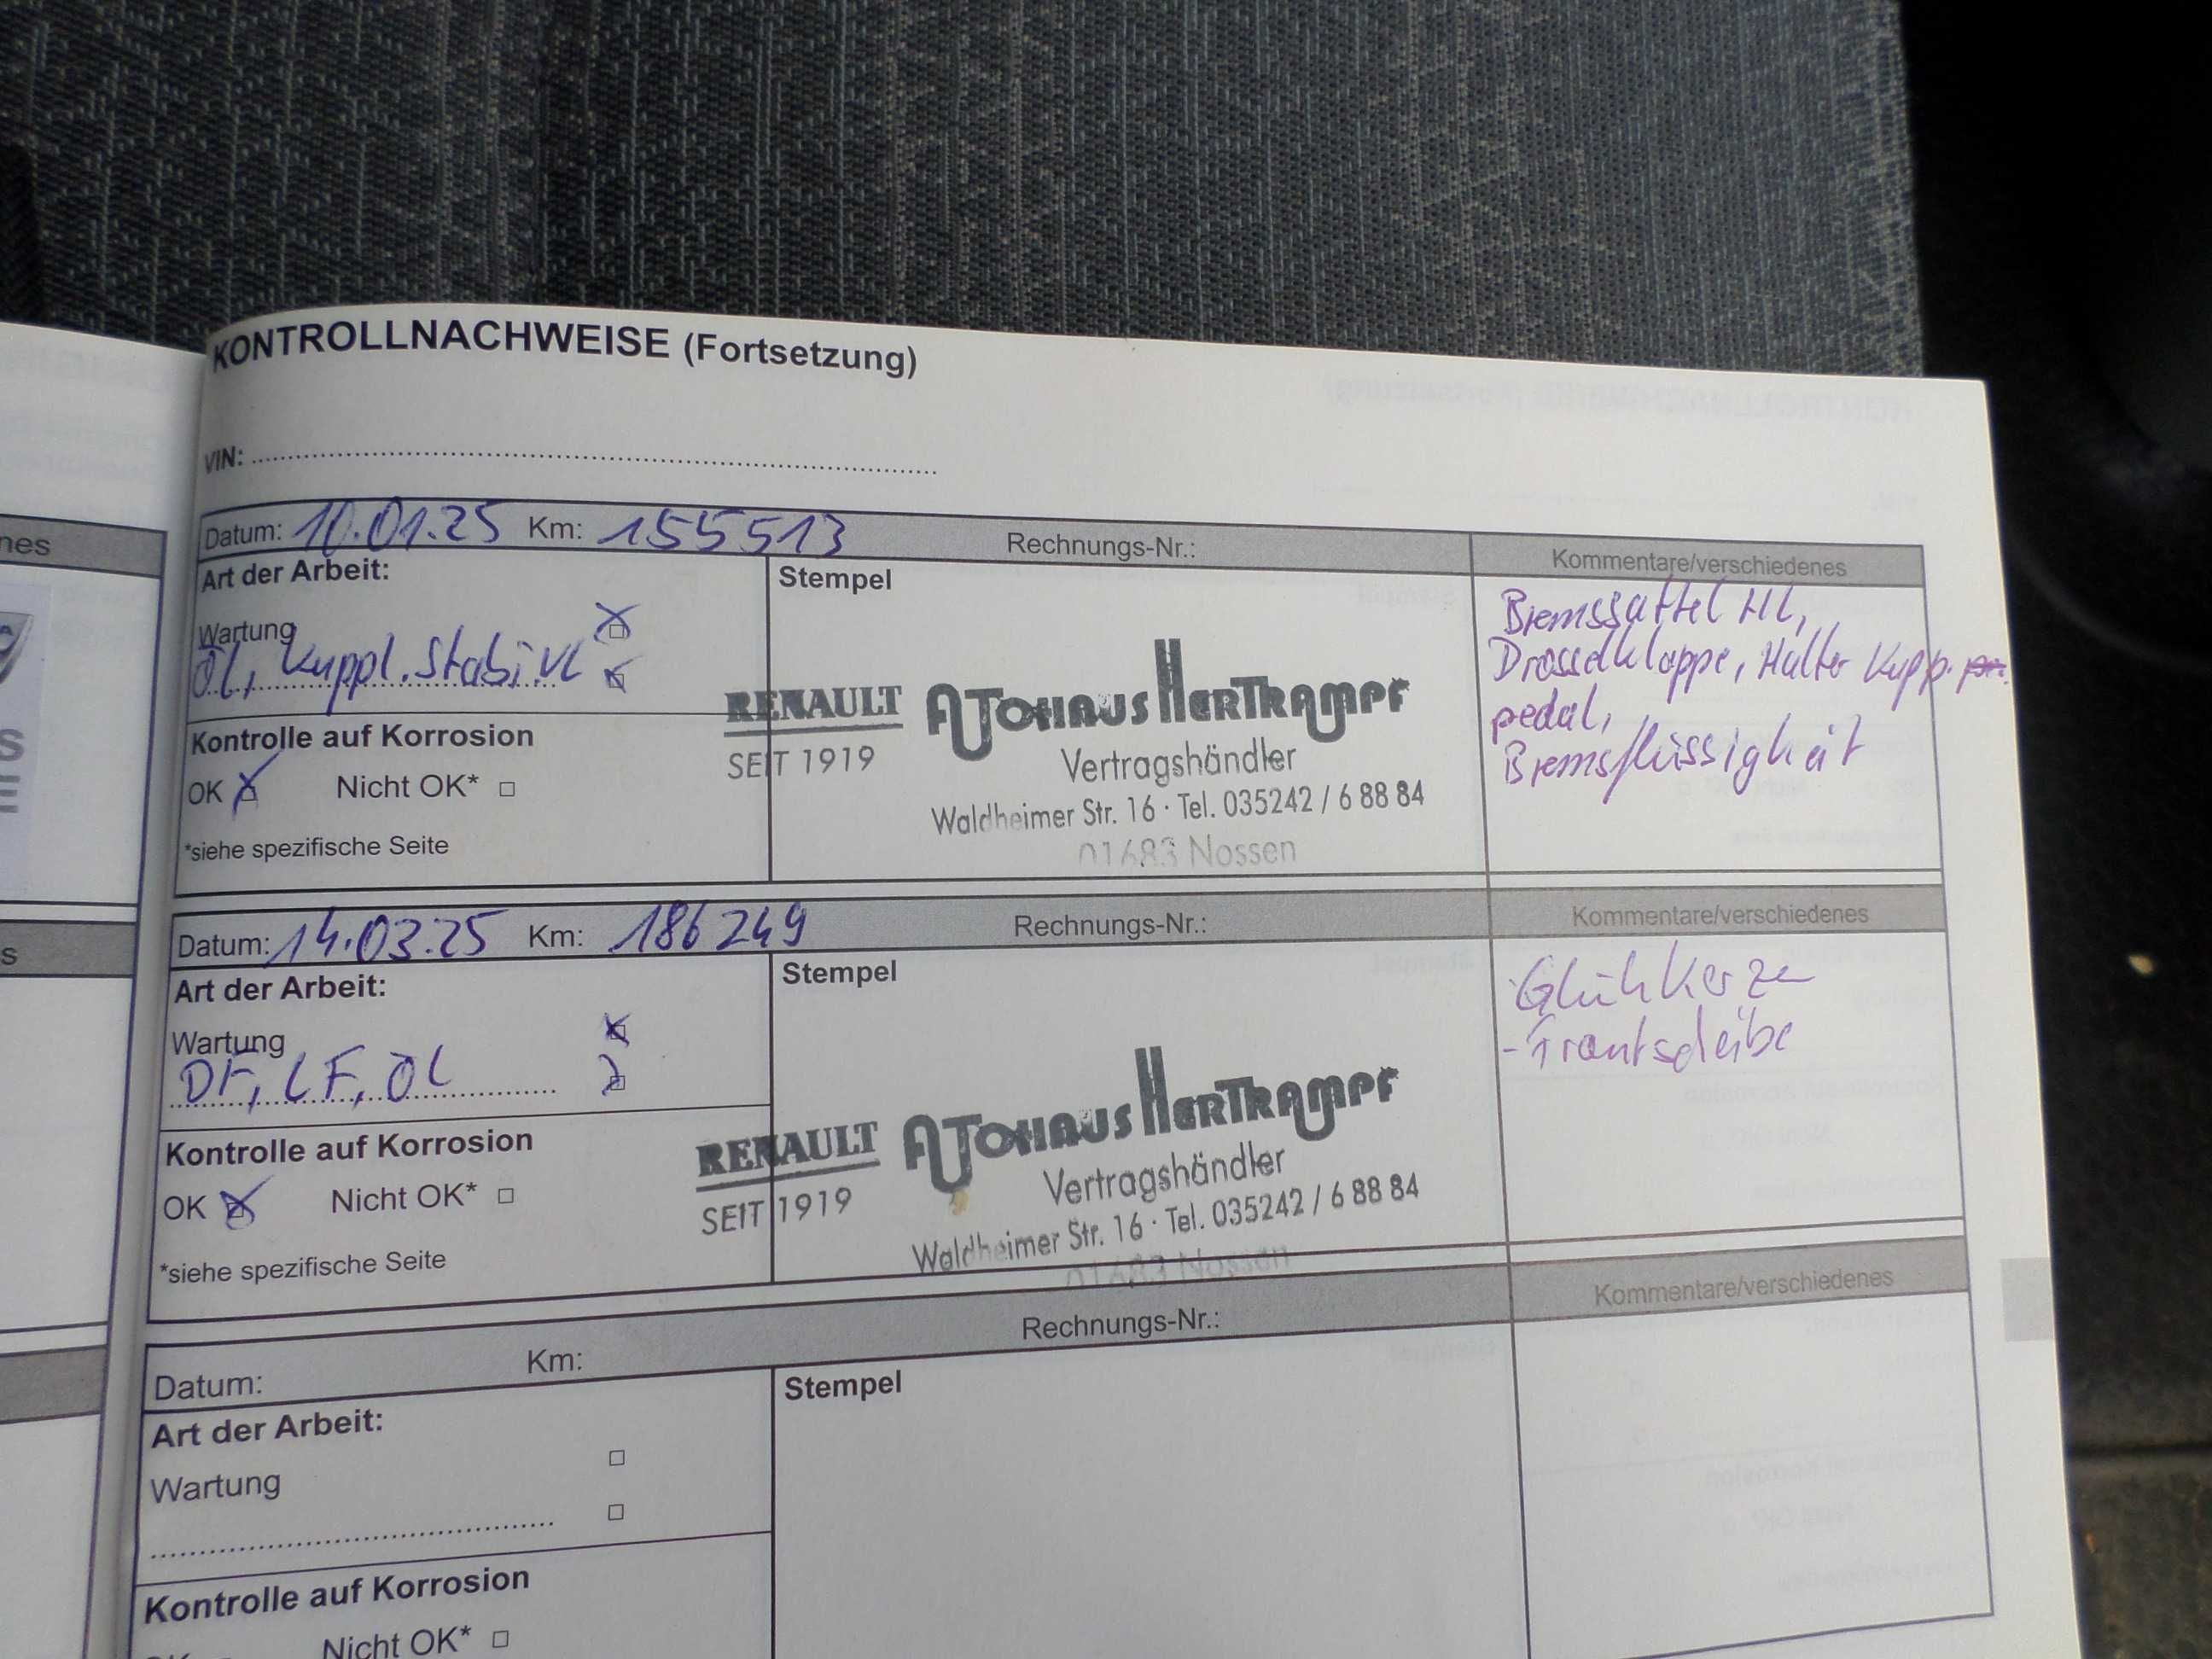 KONTROLLNACHWEISE (Fortsetzung)
VIN:
Datum: 10.01.25 Km: 155513 Rechnungs-Nr.: Kommentare/verschiedenes
Art der Arbeit: Stempel
Wartung
Öl, Kuppl. Stabi. VL
Kontrolle auf Korrosion
OK Nicht OK*
*siehe spezifische Seite
RENAULT AUTOHAUS HERTRAMPF
SEIT 1919 Vertragshändler
Waldheimer Str. 16 · Tel. 035242 / 6 88 84
01683 Nossen
Bremssattel HL,
Drosselklappe, Halter Kupp.
pedal,
Bremsflüssigkeit
Datum: 14.03.25 Km: 186249 Rechnungs-Nr.: Kommentare/verschiedenes
Art der Arbeit: Stempel
Wartung
DF, LF, ÖL
Kontrolle auf Korrosion
OK Nicht OK*
*siehe spezifische Seite
RENAULT AUTOHAUS HERTRAMPF
SEIT 1919 Vertragshändler
Waldheimer Str. 16 · Tel. 035242 / 6 88 84
01683 Nossen
Glühkerze
-Frontscheibe
Datum: Km: Rechnungs-Nr.: Kommentare/verschiedenes
Art der Arbeit: Stempel
Wartung
Kontrolle auf Korrosion
Nicht OK*